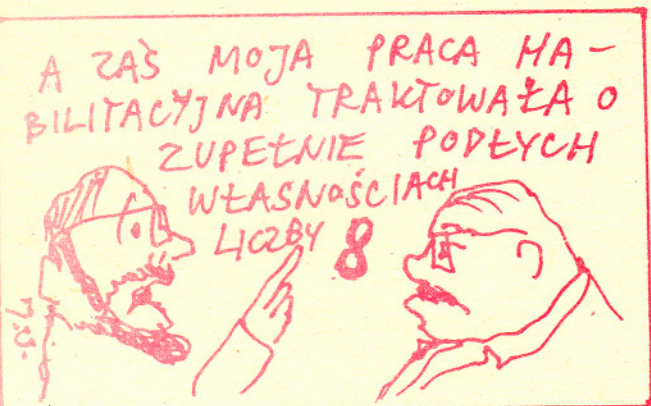 A ZAŚ MOJA PRACA HA-
BILITACYJNA TRAKTOWAŁA O
ZUPEŁNIE PODŁYCH
WŁASNOŚCIACH
LICZBY 8